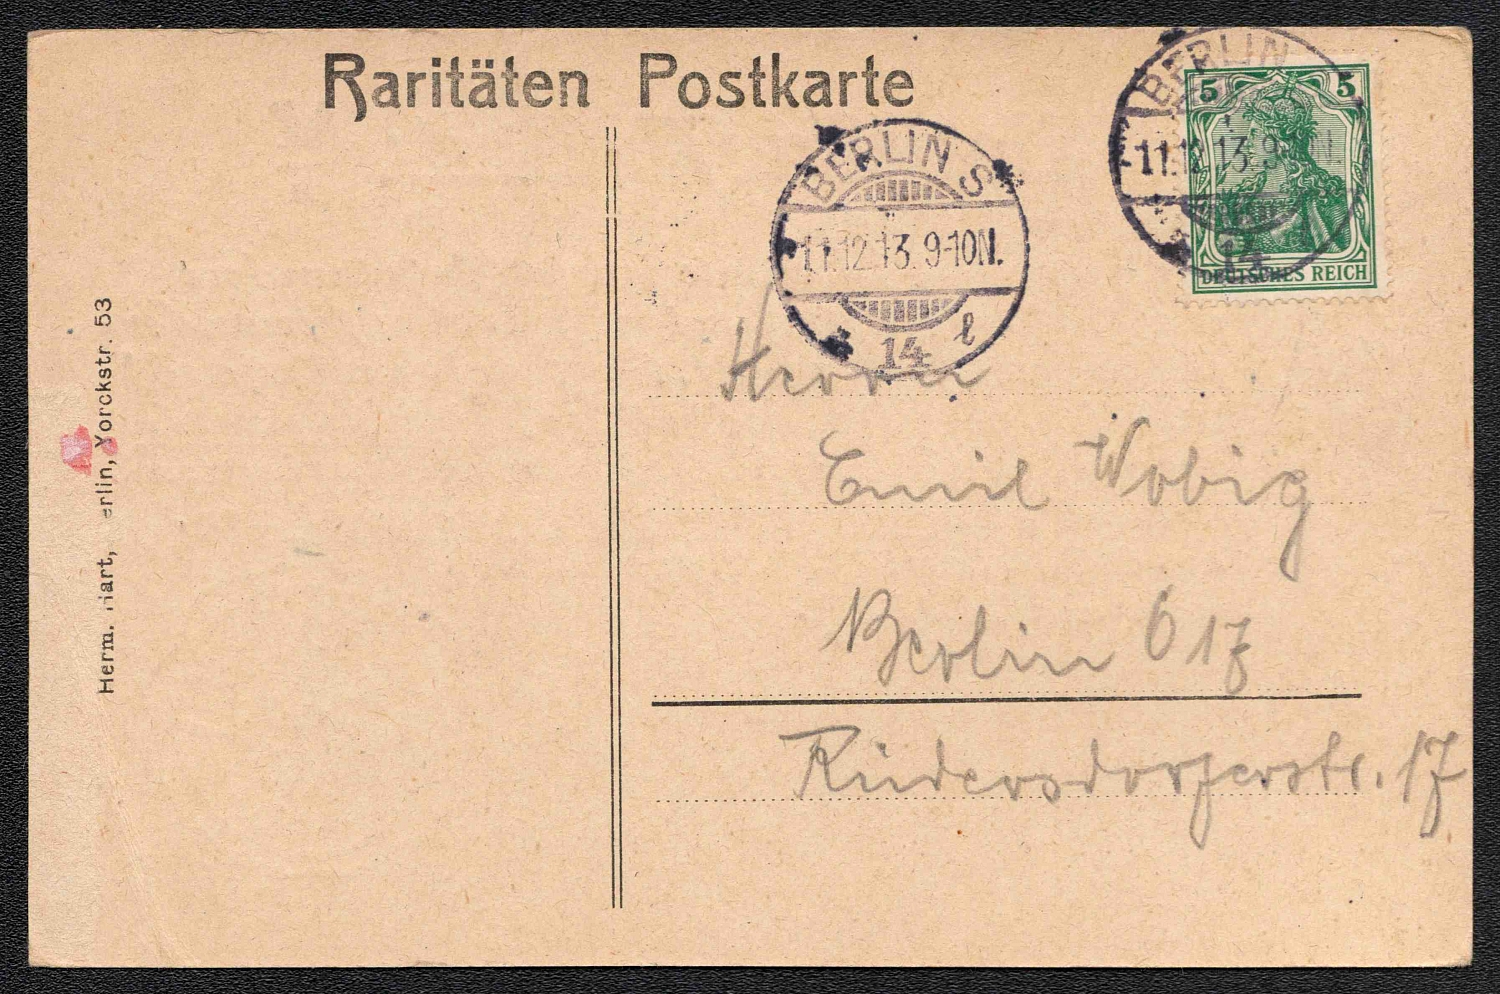 Raritäten Postkarte
BERLIN S
11.12.13. 9-10N.
14 l
BERLIN
11.12.13. 9
14
5 5
DEUTSCHES REICH
Herrn
Emil Wobig
Berlin O 17
Rüdersdorferstr. 17
Herm. erlin, Yorckstr. 53